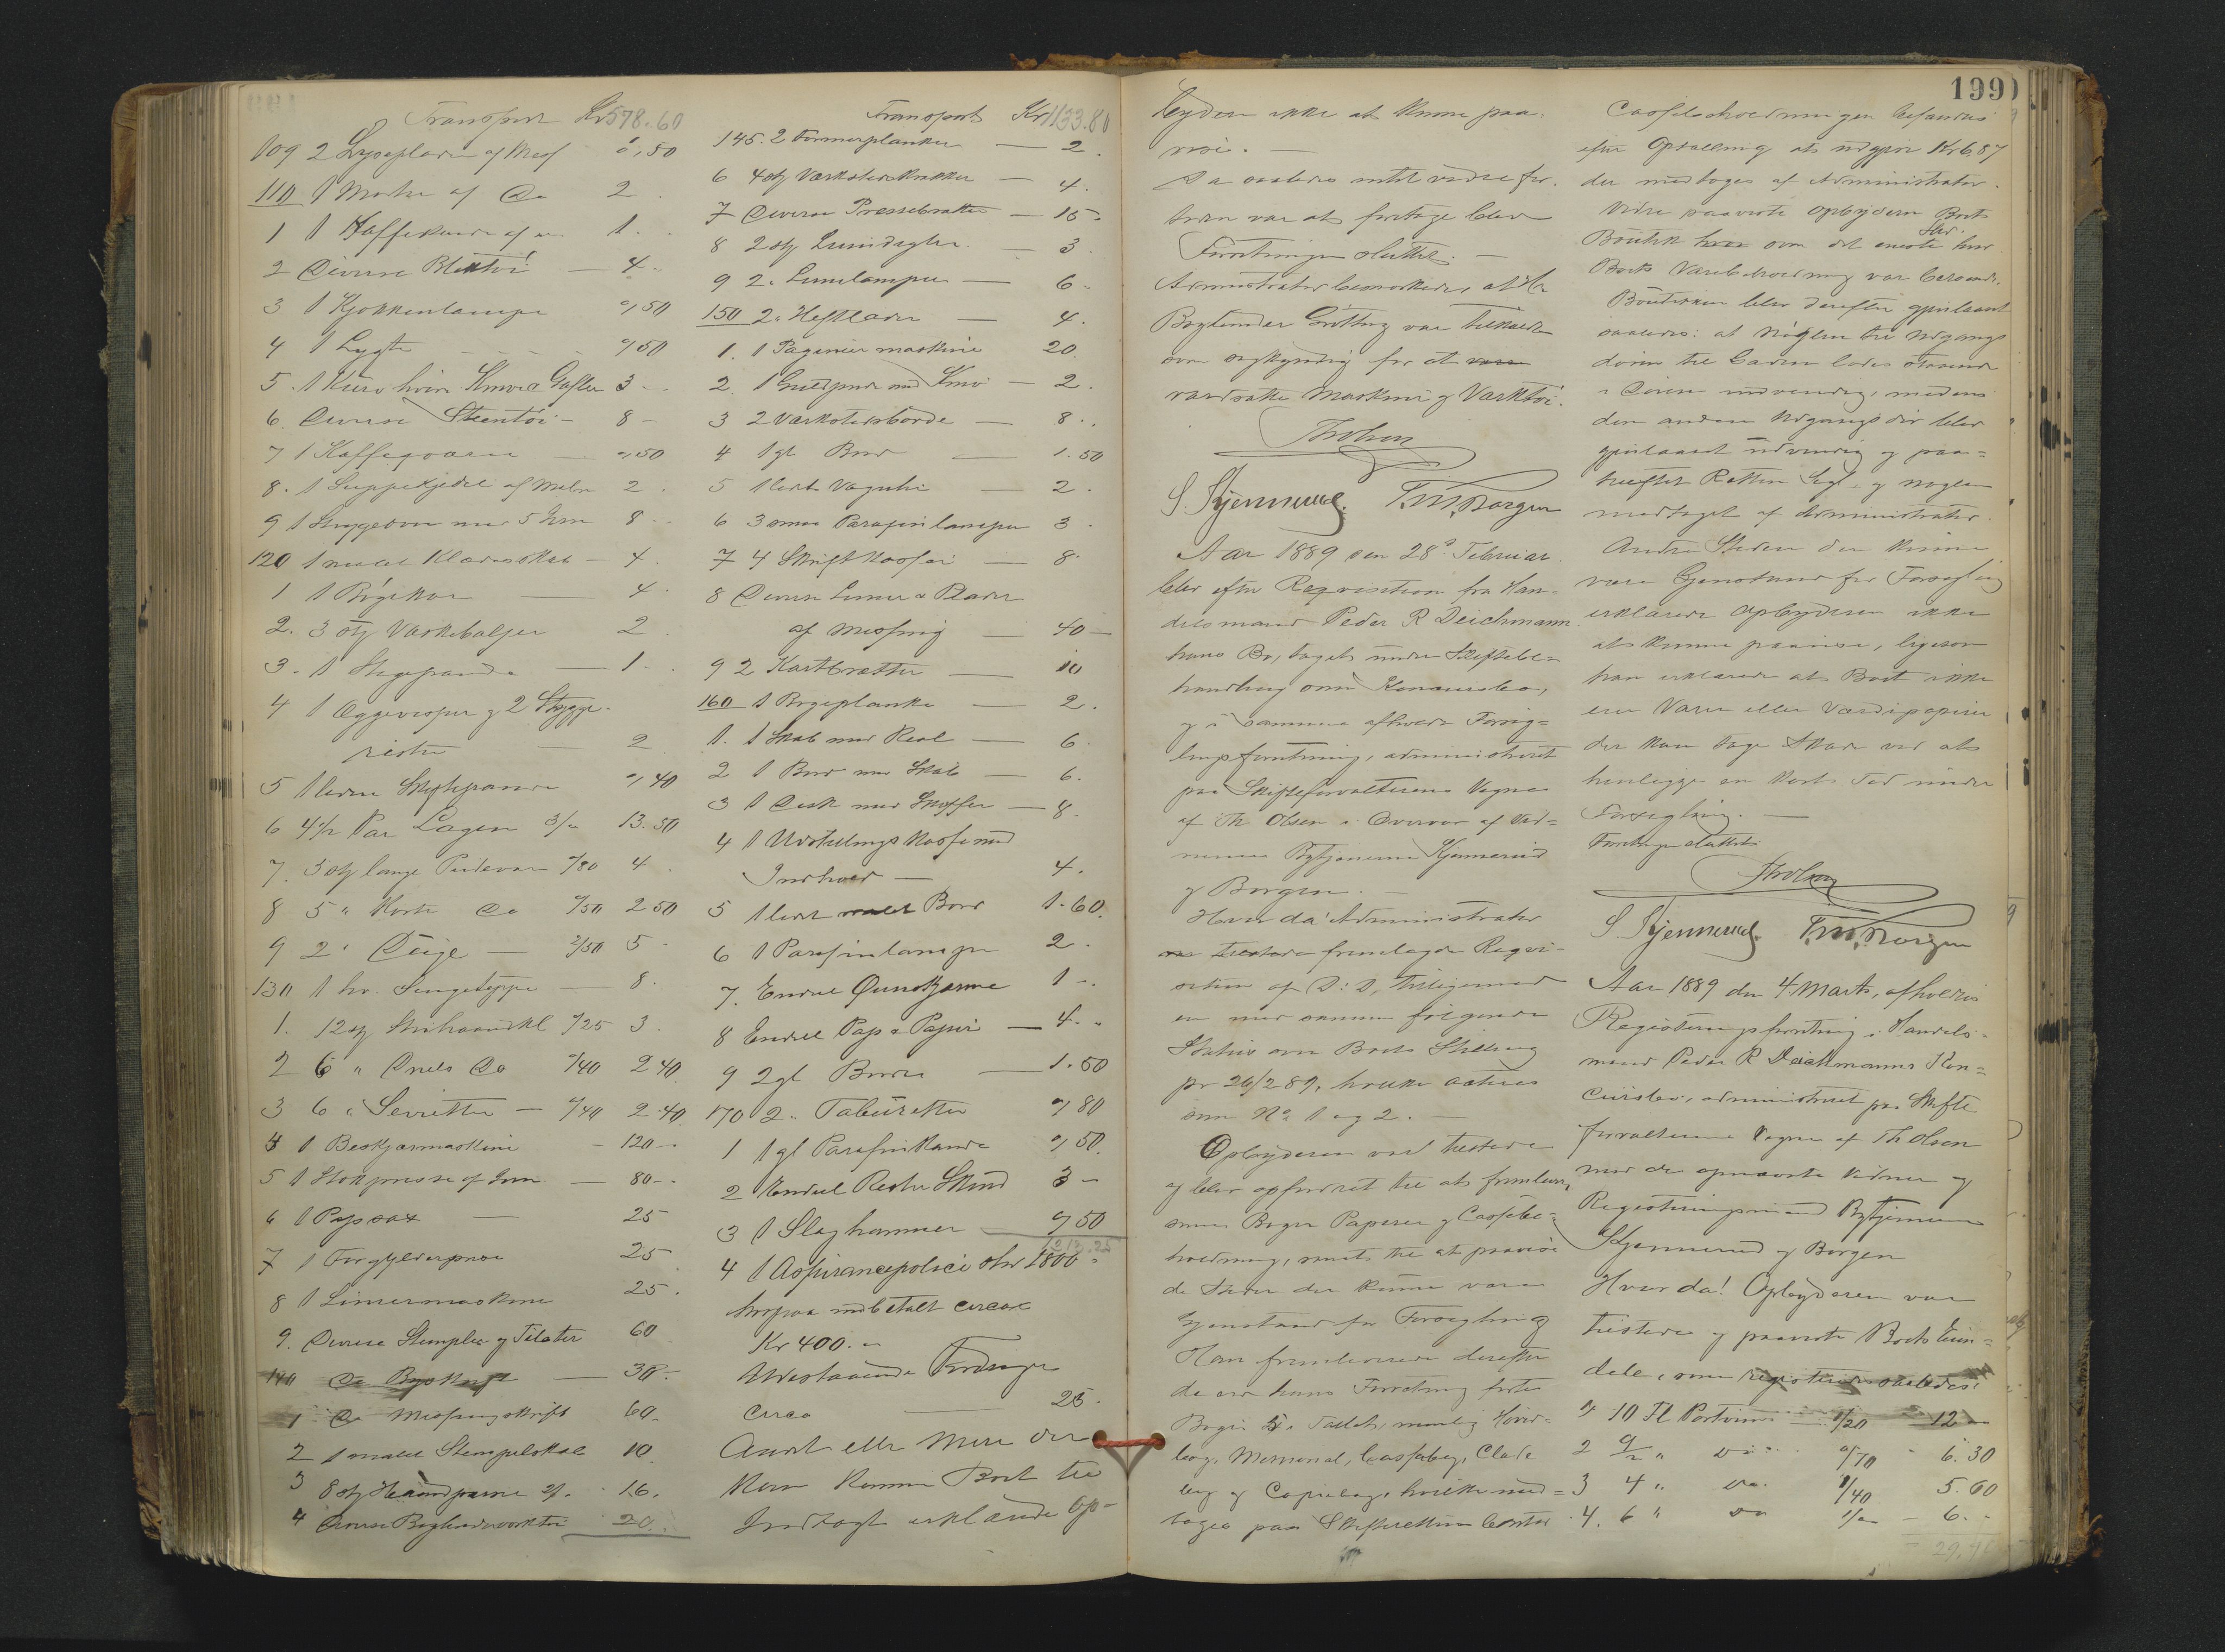 Transport Kr 578.60
109 2 Lyseplader af Mess 0,50
110 1 Morter af Do 2.
1 1 Kaffekande af 1.
2 Diverse Bliktøi — 4 -
3 1 Kjøkkenlampe 0,50
4 1 Lygte 0,50
5. 1 Kurv hvori Knive & Gafler 3 -
6. Diverse Steentøi - 8 -
7 1 Kaffeqværn — 0,50
8. 1 Suppekjedel af Malm 2.
9 1 Stryggeovn med 5 Jern 8 -
120 1 malet Klædesskab — 4.
1 1 Bøgekar — 4.
2. 3 stk Vaskebaljer 2
3. 1 Stegepande — 1.
4 1 Eggevesper & 2 Strygge-
rister — 2
5 1 liden Stegepande 0,40
6 4 1/2 Par Lagen 3/- 13.50
7. 5 stk lange Pudevar /80 4.
8 5 " Korte Do /50 2 50
9 2 " Duge — 2/50 5 -
130 1 hv. Sengeteppe — 8.
1. 12 stk Haandkl /25 3.
2 6 " Do /40 2 40
3 6 " Servietter — /40 2.40
4 1 Beskjærmaskine — 120 -
5 1 Stokpresse af Jern — 80 -
6 1 Papsax — 25
7 1 Forgylderpresse 25
8 1 Liniermaskine 25.
9. Diverse Stempler og Fileter 60
140 Do Bogskrift — 30.-
1 Do Messingskrift 60.
2 1 malet Stempelskab 10.
3 8 stk Haandpresse 2/- 16.
4 Diverse Bogbinderværktøi 20.
Transport Kr 1133.80
145. 2 Formerplanker — 2.
6 4 stk Værkstedskrakker — 4.
7 Diverse Pressebrætter — 15 -
8 2 stk Liimdegler — 3.
9 2 " Liimlamper — 6 -
150 2 " Heftelader — 4.
1. 1 Pagineermaskine 20.
2 1 Guldpude med Kniv — 2.
3 2 Værkstedsborde — 8.
4 1 gl Bord — 1.50
5 1 liden Vaguhr — 2.
6 3 smaa Parafinlamper 3.
7 4 Skriftkasser — 8.
8 Diverse Linier & Plader
af Messing — 40 —
9 2 Kartbrætter — 10
160 1 Bogeplanke — 2.
1. 1 Skab med Reol — 6.
2 1 Bord med Skab — 6.
3 1 Disk med Skuffer — 8.
4 1 Udstillingskasse med
Indhold — 4.
5 1 lidet malet Bord 1.60
6 1 Parafinlampe 2.
7. Endeel 1 -
8 Endeel Pap & Papir — 4.
9 2 gl Borde — 1.50
170 2 " Taburetter 0,80
1 1 gl Parafinkande 0,50
2 Endeel Rester Skind 3 -
3 1 Slaghammer 0,50
4 1 Aspirancepolice stor 1800 -
hvorpaa indbetalt circa
Kr 400.-
Udestaaende Fordringer
circa — 25.
Andet eller mere der
kan komme Boet til
Indtægt erklærede Op-
byderen ikke at kunne paa-
vise. —
Da saaledes intet videre for-
uden var at foretage blev
Forretningen sluttet. —
Administrator bemærkede, at Hr
Bogbinder Gröttng var tilkaldt
som sagkyndig for at
værdsætte Maskiner og Værktøi.
Th Olsen
S. Kjennerud. T. M. Borgen
Aar 1889 den 28de Februar
blev efter Reqvisition fra Han-
delsmand Peder R Deichmann
hans Bo, taget under Skiftebe-
handling som Konkursbo,
og i samme afholdt Forseg-
lingsforretning, administreret
paa Skifteforvalterens Vegne
af Th Olsen i Overvær af Vid-
nerne Bytjenerne Kjennerud
og Borgen. —
Hvor da! Administrator
fremlagde Reqvi-
sition af D: D, tilligemed
en med samme følgende
Status over Boets Stilling
pr 26/2 89, hvilke acteres
som No 1 og 2. —
Opbyderen var tilstede
og blev opfordret til at fremlevere
sine Bøger Papirer og Cassebe-
holdning, samt til at paavise
de Steder der kunne være
Gjenstand for Forsegling
Han fremleverede derefter
de over hans Forretning førte
Bøger 5 i Tallet, nemlig Hoved-
bog, Memorial, Cassebog, Clade
bog og Copiebog, hvilke med-
toges paa Skifterettens Contor
199
Cassebeholdningen befandtes
efter Optælling at udgjøre Kr 6,87
der medtoges af Administrator.
Videre paaviste Opbyderen Boets
Boutik som det eneste Sted hvor
Boets Varebeholdning var beroende.
Boutiken blev derefter gjenlaast
saaledes: at nøglen til Udgangs
døren til Gaden lodes staaende
i Døren indvendig, medens
den anden Udgangsdør blev
gjenlaast udvendig og paa-
heftet Rettens Segl - og nøglen
medtaget af Administrator.
Andre Steder der kunne
være Gjenstand for Forsegling
erklærede Opbyderen ikke
at kunne paavise, ligesom
han erklærede at Boet ikke
eier Varer eller Værdipapirer
der kan tage Skade ved at
henligge en kort Tid under
Forsegling. —
Forretningen sluttet
Th Olsen
S. Kjennerud. T. M. Borgen
Aar 1889 den 4 Marts, afholdtes
Registreringsforretning i Handels-
mand Peder R Deichmanns Kon-
cursbo, administreret paa Skifte
forvalterens Vegne af Th Olsen
med de opnævnte Vidner og
Registreringsmænd Bytjenerne
Kjennerud og Borgen
Hvor da! Opbyderen var
tilstede og paaviste Boets Eien-
dele, som registreredes saaledes:
1 10 Fl Portviin 1/20 12 -
2 9/2 " Do /70 - 6.30
3 4 " Do. 1/40 5.60
4. 6 " Do 1/- — 6.-
29,90